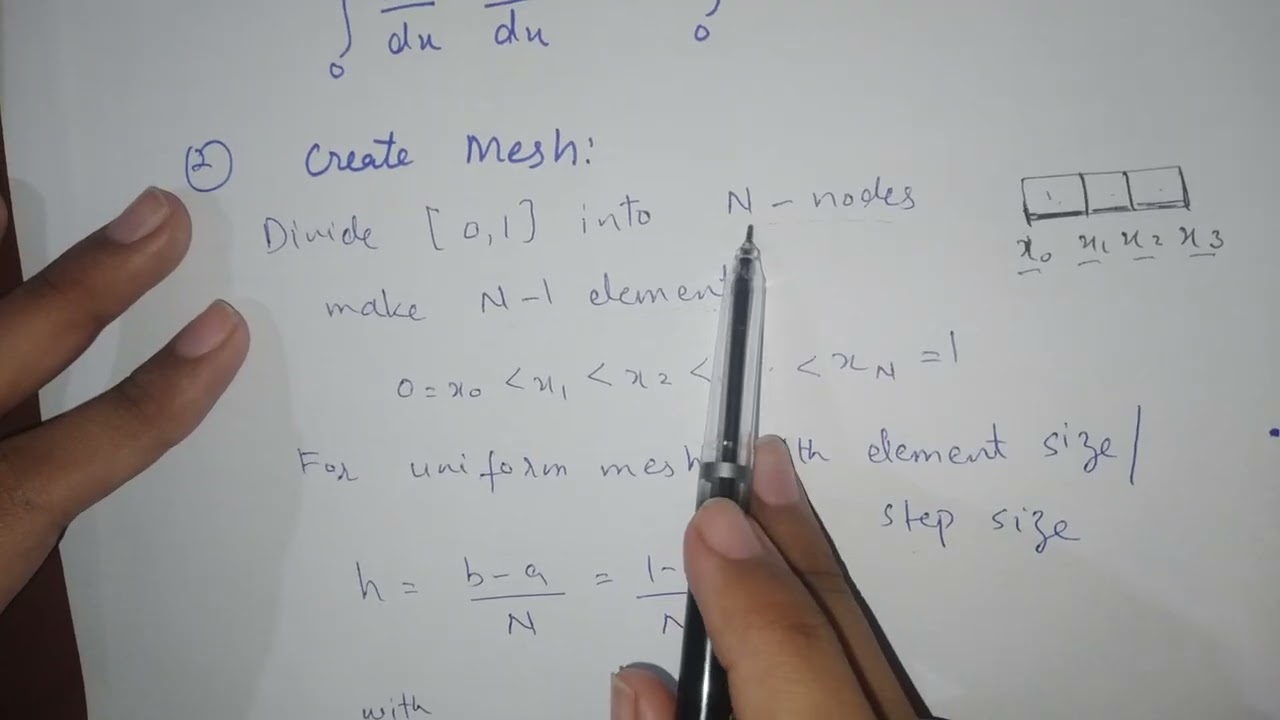 ∫ du du
0 0
② Create Mesh:
Divide [0,1] into N - nodes
x₀ x₁ x₂ x₃
make N-1 element
0 = x₀ < x₁ < x₂ < . < x_N = 1
For uniform mesh th element size/
step size
h = b-a/N = 1-/N
with